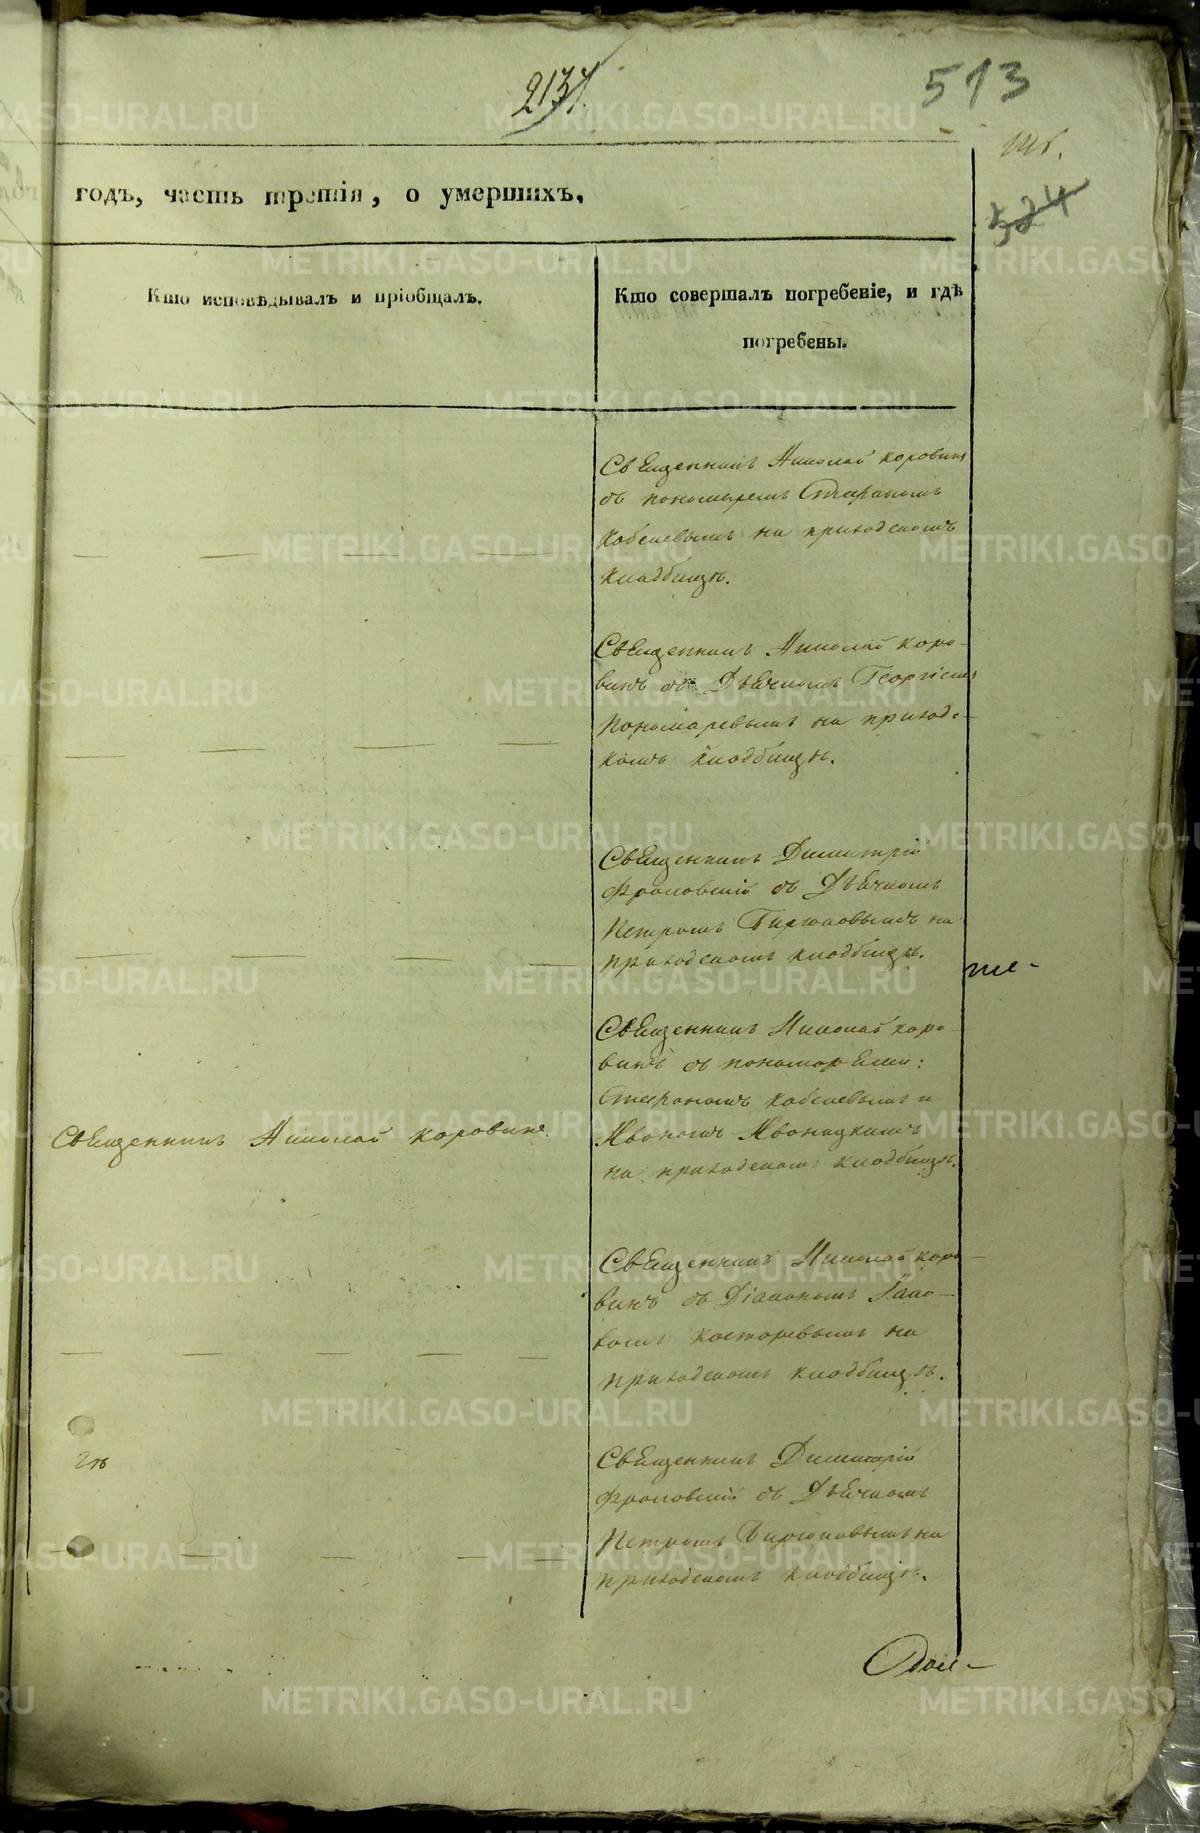 2137.
513
324
годъ, часть третія, о умершихъ.
Кто исповѣдывалъ и пріобщалъ.
Кто совершалъ погребеніе, и гдѣ
погребены.
Священникъ Николай Коровинъ
съ пономаремъ Стефаномъ
Кобелевымъ на приходскомъ
кладбищѣ.
Священникъ Николай Коро-
винъ съ Дьячкомъ Георгіемъ
Пономаревымъ на приход-
комъ кладбищѣ.
Священникъ Димитрій
Фроловскій съ Дьячкомъ
Петромъ Бирюковымъ на
приходскомъ кладбищѣ.
Священникъ Николай Коро-
винъ съ пономарями:
Стефаномъ Кобелевымъ и
Иваномъ Ивоницкимъ
на приходскомъ кладбищѣ.
Священникъ Николай Коровинъ.
Священникъ Николай Коро-
винъ съ Діакономъ Іако-
вомъ Костаревымъ на
приходскомъ кладбищѣ.
Священникъ Димитрій
Фроловскій съ Дьячкомъ
Петромъ Бирюковымъ на
приходскомъ кладбищѣ.
METRIKI.GASO-URAL.RU